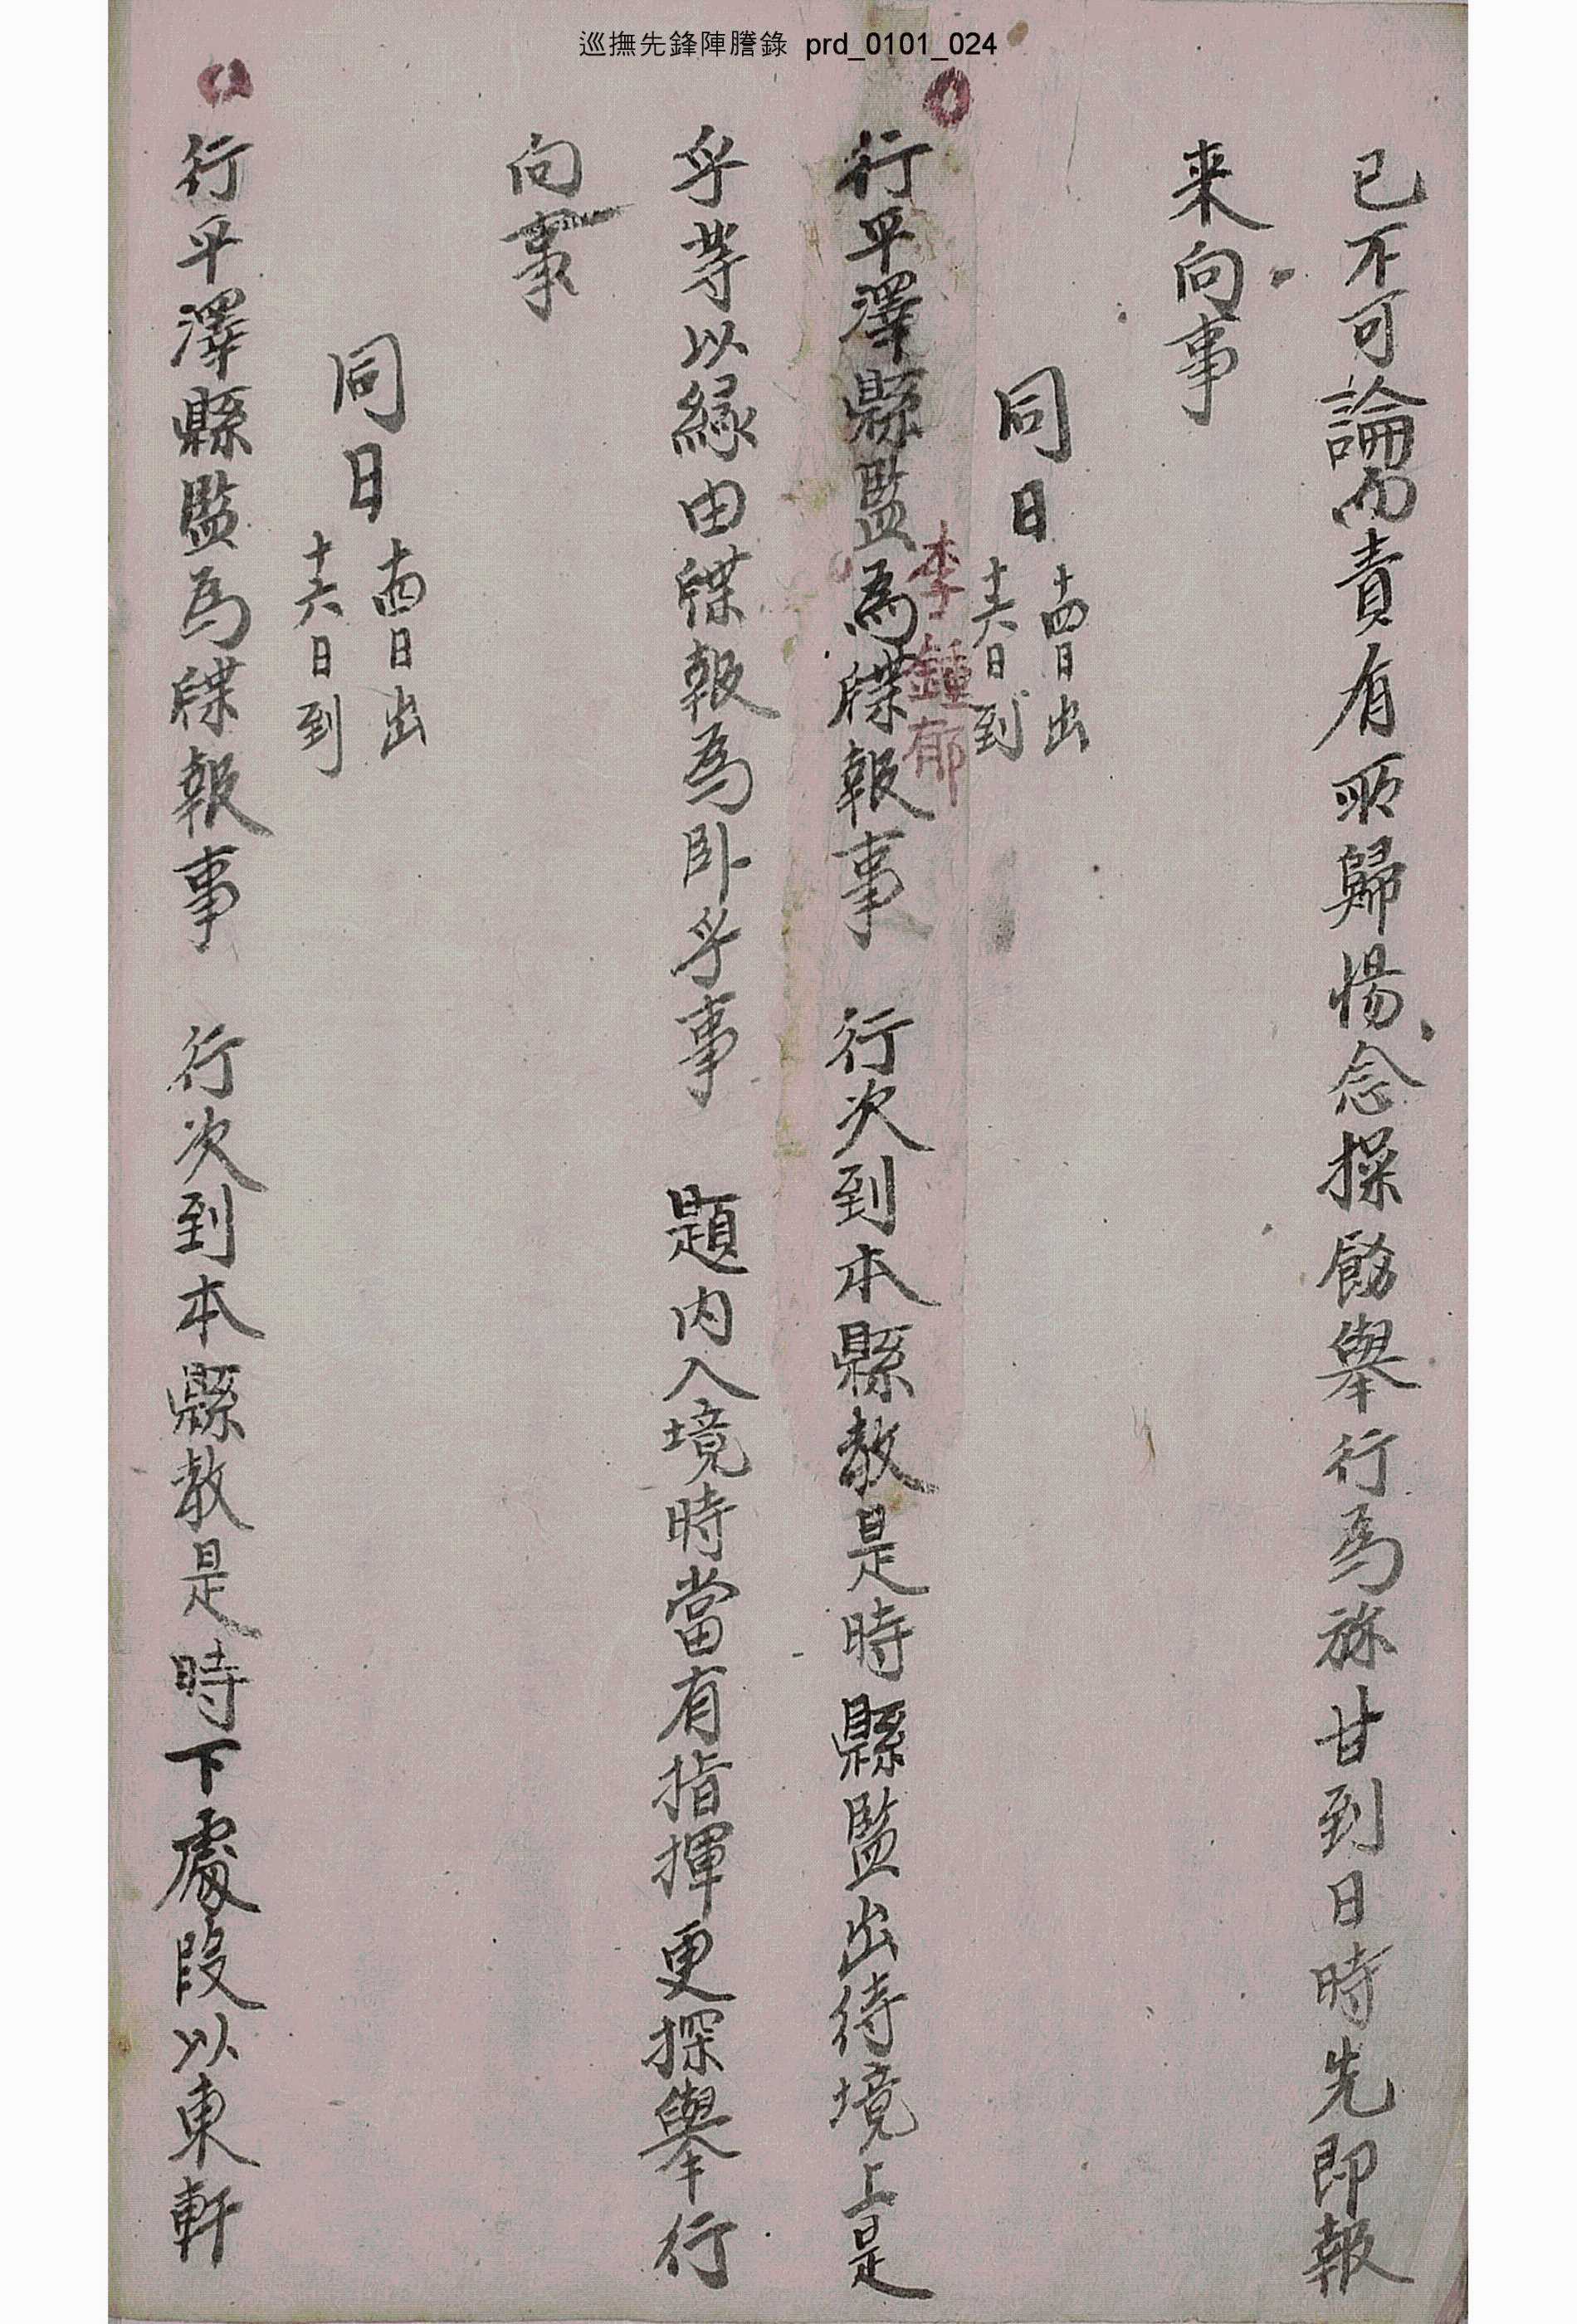 巡撫先鋒陣謄錄 prd_0101_024
已不可論而責有所歸惕念操飭舉行爲㫆甘到日時先卽報
来向事
同日 十四日出 十六日到
李鍾郁
行平澤縣監爲牒報事 行次到本縣教是時縣監出待境上是
乎等以緣由牒報爲臥乎事 題內入境時當有指揮更探舉行
向事
同日 十四日出 十六日到
行平澤縣監爲牒報事 行次到本縣教是時下處段以東軒